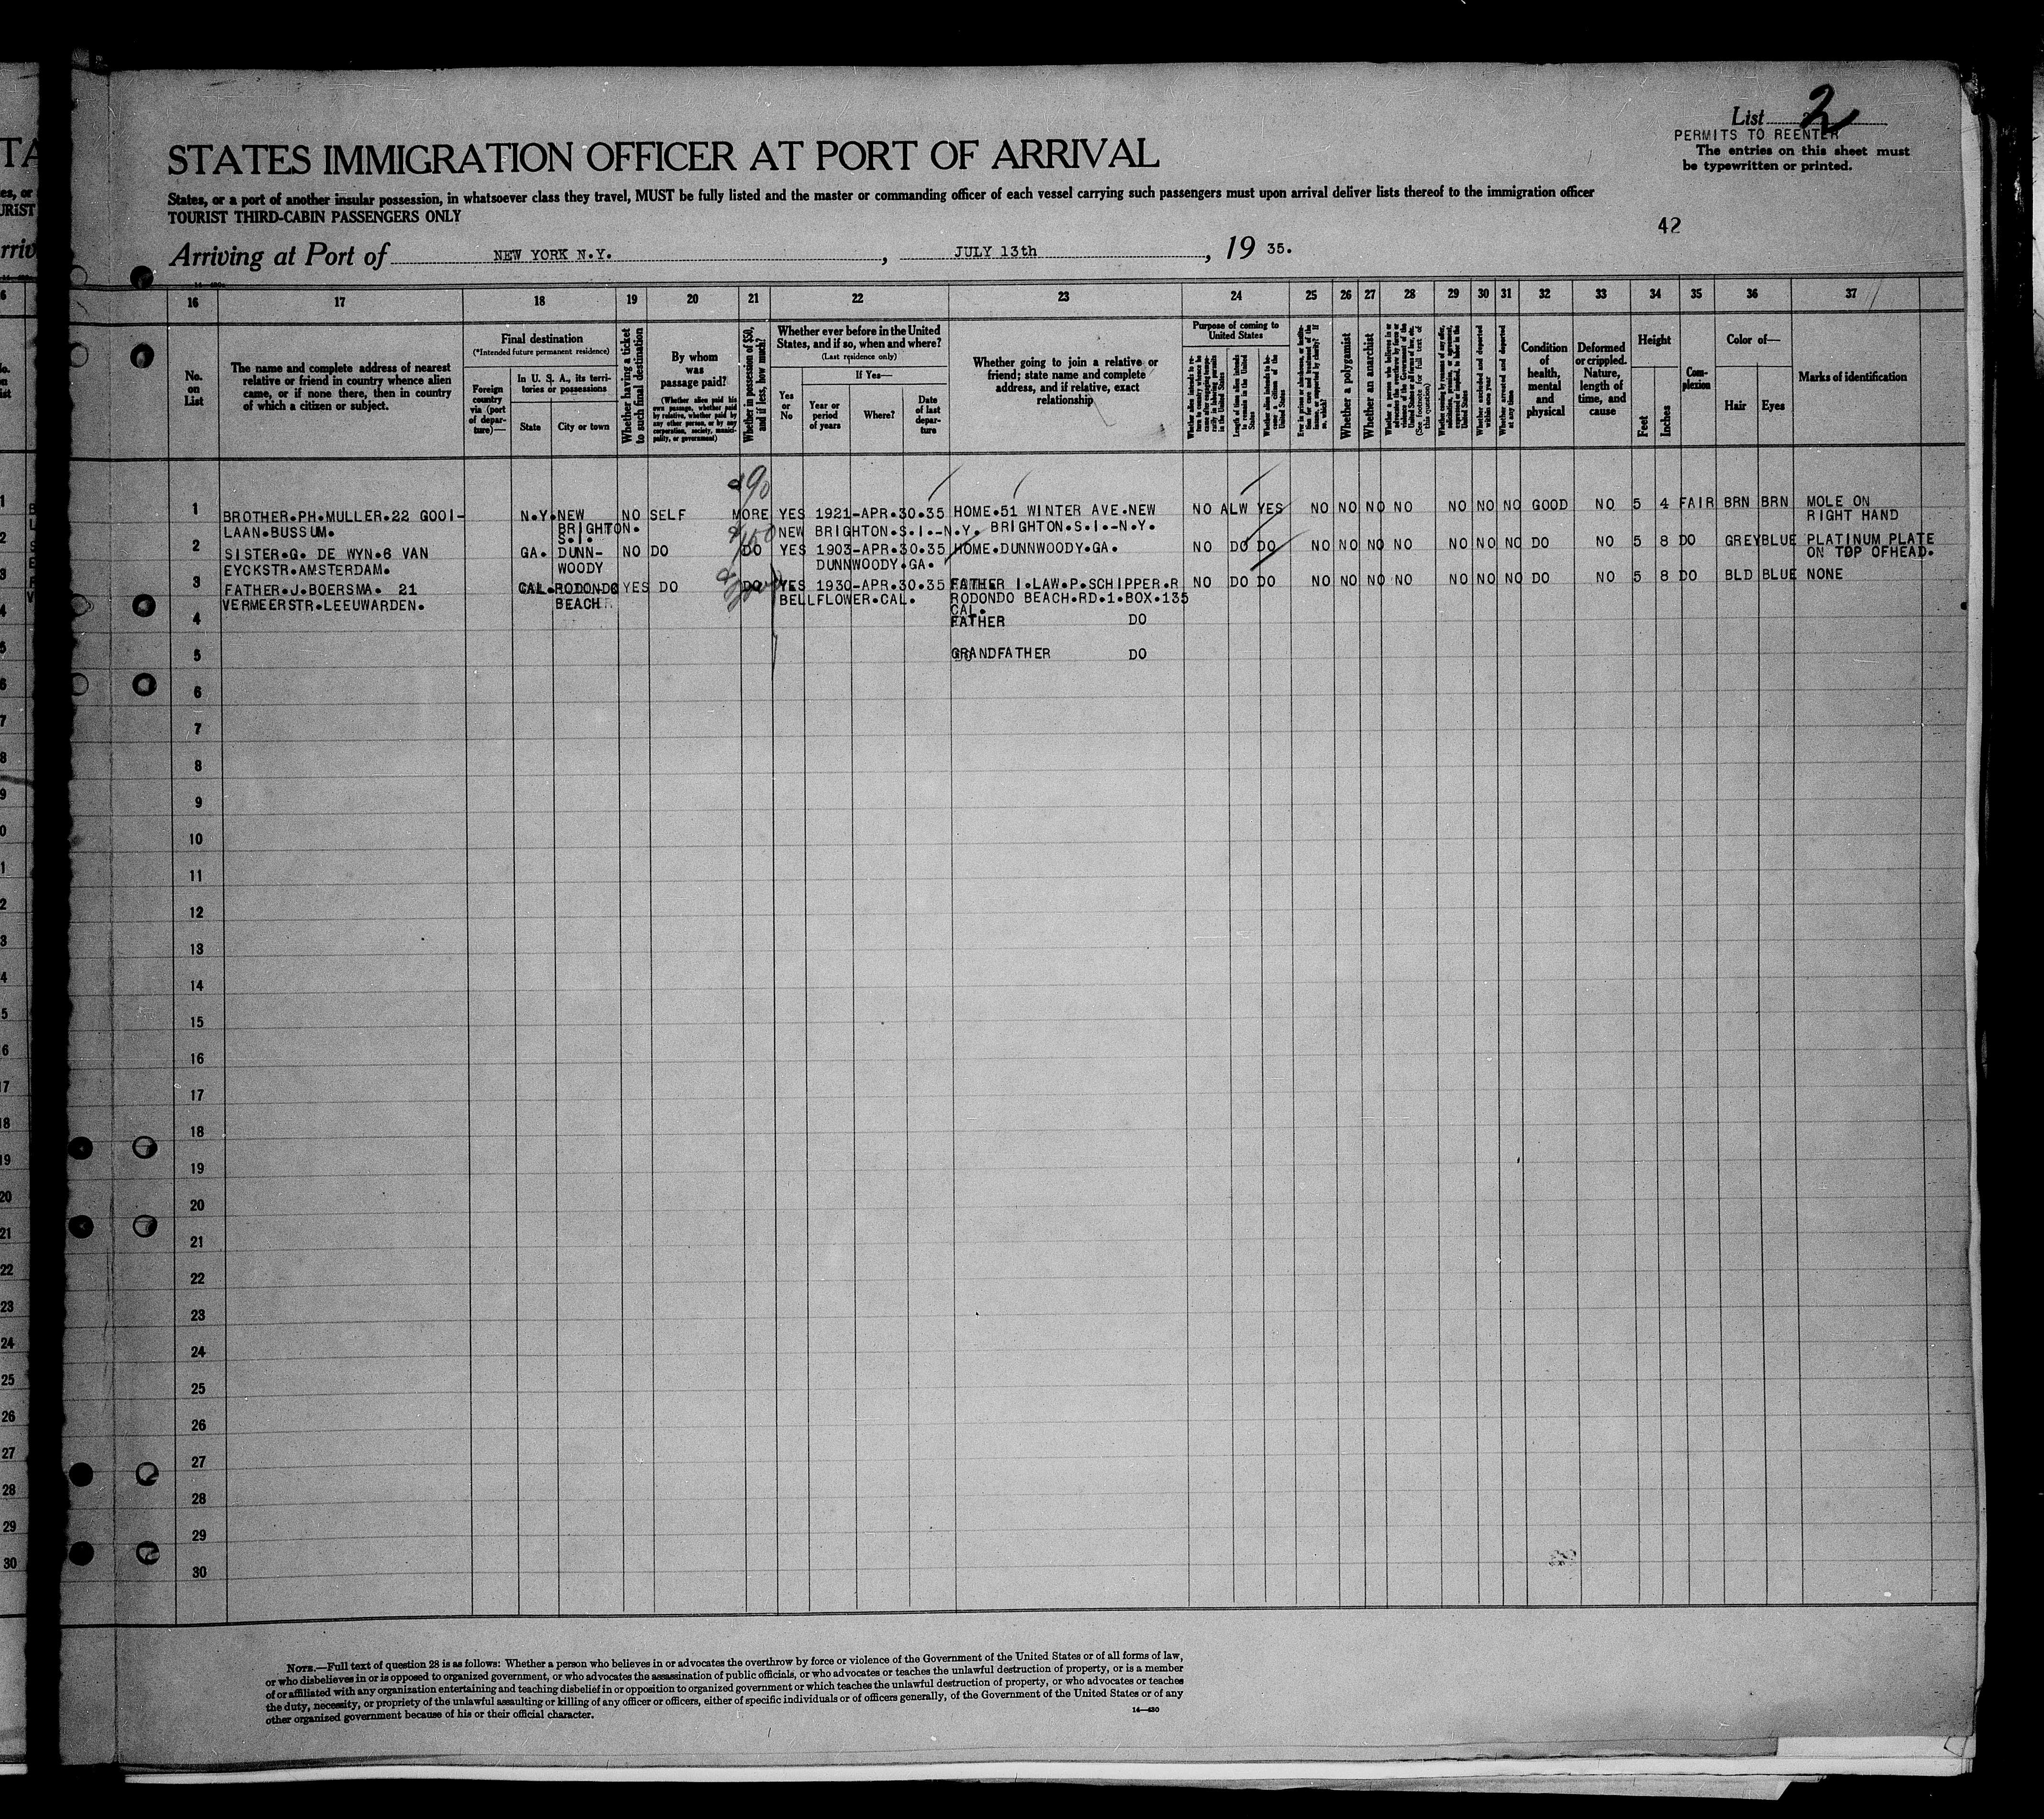 List 2
PERMITS TO REENTER
The entries on this sheet must
be typewritten or printed.
STATES IMMIGRATION OFFICER AT PORT OF ARRIVAL
States, or a port of another insular possession, in whatsoever class they travel, MUST be fully listed and the master or commanding officer of each vessel carrying such passengers must upon arrival deliver lists thereof to the immigration officer
TOURIST THIRD-CABIN PASSENGERS ONLY
42
Arriving at Port of NEW YORK N.Y. , JULY 13th , 19 35.
16 17 18 19 20 21 22 23 24 25 26 27 28 29 30 31 32 33 34 35 36 37
No. on List
The name and complete address of nearest
relative or friend in country whence alien
came, or if none there, then in country
of which a citizen or subject.
Final destination
(*Intended future permanent residence)
Foreign country via (port of departure)—
In U. S. A., its territories or possessions
State
City or town
Whether having a ticket to such final destination
By whom was passage paid?
(Whether alien paid his own passage, whether paid by relative, whether paid by any other person, or by any corporation, society, municipality, or government)
Whether in possession of $50, and if less, how much?
Whether ever before in the United
States, and if so, when and where?
(Last residence only)
If Yes—
Yes or No
Year or period of years
Where?
Date of last departure
Whether going to join a relative or
friend; state name and complete
address, and if relative, exact
relationship
Purpose of coming to
United States
Length of time alien intends to remain in the United States
Whether alien intends to become a citizen of the United States
Whether a polygamist
Whether an anarchist
(See footnote for full text of this question)
Whether arrested and deported at any time
Condition of health, mental and physical
Deformed or crippled. Nature, length of time, and cause
Height
Feet
Inches
Complexion
Color of—
Hair
Eyes
Marks of identification
90
1 BROTHER.PH.MULLER.22 GOOI- N.Y. NEW NO SELF MORE YES 1921-APR.30.35 HOME.51 WINTER AVE.NEW NO ALW YES NO NO NO NO NO NO NO GOOD NO 5 4 FAIR BRN BRN MOLE ON
LAAN.BUSSUM. BRIGHTON. NEW BRIGHTON.S.I.-N.Y. BRIGHTON.S.I.-N.Y. RIGHT HAND
S.I.
2 SISTER.G. DE WYN.6 VAN GA. DUNN- NO DO DO YES 1903-APR.30.35 HOME.DUNNWOODY.GA. NO DO DO NO NO NO NO NO NO NO DO NO 5 8 DO GREY BLUE PLATINUM PLATE
EYCKSTR.AMSTERDAM. WOODY DUNNWOODY.GA. ON TOP OFHEAD.
3 FATHER.J.BOERSMA. 21 CAL. RODONDO YES DO DO YES 1930-APR.30.35 FATHER I.LAW.P.SCHIPPER.R NO DO DO NO NO NO NO NO NO NO DO NO 5 8 DO BLD BLUE NONE
VERMEERSTR.LEEUWARDEN. BEACH BELLFLOWER.CAL. RODONDO BEACH.RD.1.BOX.135
CAL.
4 FATHER DO
5 GRANDFATHER DO
6
7
8
9
10
11
12
13
14
15
16
17
18
19
20
21
22
23
24
25
26
27
28
29
30
NOTE.—Full text of question 28 is as follows: Whether a person who believes in or advocates the overthrow by force or violence of the Government of the United States or of all forms of law,
or who disbelieves in or is opposed to organized government, or who advocates the assassination of public officials, or who advocates or teaches the unlawful destruction of property, or is a member
of or affiliated with any organization entertaining and teaching disbelief in or opposition to organized government or which teaches the unlawful destruction of property, or who advocates or teaches
the duty, necessity, or propriety of the unlawful assaulting or killing of any officer or officers, either of specific individuals or of officers generally, of the Government of the United States or of any
other organized government because of his or their official character.
14—430